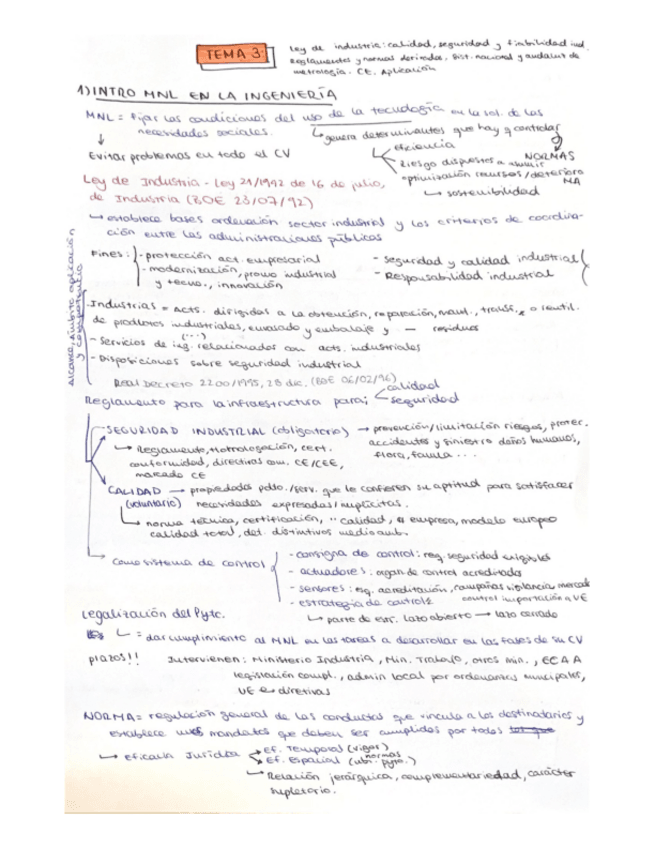 TEMA 3:
Ley de industria: calidad, seguridad y fiabilidad ind.
Reglamentos y normas derivadas, Sist. nacional y andaluz de
metrología. CE. Aplicación
1) INTRO MNL EN LA INGENIERÍA
MNL = Fijar las condiciones del uso de la tecnología en la sol. de las
necesidades sociales.
↳ genera determinantes que hay q controlar
↓
eficiencia
NORMAS
Evitar problemas en todo el CV
Riesgo dispuestos a asumir
optimización recursos/deterioro
MA
↳ sostenibilidad
Ley de Industria - Ley 21/1992 de 16 de julio,
de Industria (BOE 23/07/92)
↳ establece bases ordenación sector industrial y los criterios de coordina-
ción entre las administraciones públicas
Fines:
- protección act. empresarial
- modernización, promo industrial
y tecno., innovación
- seguridad y calidad industrial
- Responsabilidad industrial
Alcance, ámbito aplicación
y competencia
- Industrias = Acts. dirigidas a la obtención, reparación, mant., transf., o reutil.
de productos industriales, envasado y embalaje y — residuos
(...)
- Servicios de ing. relacionados con acts. industriales
- Disposiciones sobre seguridad industrial
Real Decreto 2200/1995, 28 dic. (BOE 06/02/96)
Reglamento para la infraestructura para;
calidad
seguridad
SEGURIDAD INDUSTRIAL (obligatorio) → prevención/limitación riesgos, protec.
accidentes y siniestro daños humanos,
flora, fauna ...
↳ Reglamento, Homologación, cert.
conformidad, directivas com. CE/CEE,
marcado CE
CALIDAD → propiedades pdto./serv. que le confieren su aptitud para satisfacer
(voluntario) necesidades expresadas/implícitas.
↳ norma técnica, certificación, " calidad, empresa, modelo europeo
calidad total, det. distintivos medioamb.
Como sistema de control
- consigna de control: req. seguridad exigibles
- actuadores: organ de control acreditados
- sensores: acreditación, campañas vigilancia mercado
control importación a UE
- estrategia de control
↳ parte de estr. lazo abierto → lazo cerrado
Legalización del Pyto.
↳ = dar cumplimiento al MNL en las tareas a desarrollar en las fases de su CV
plazos!!
Intervienen: Ministerio Industria, Min. Trabajo, otros min., ECAA
legislación compl., admin local por ordenanzas municipales,
UE directivas
NORMA = regulación general de las conductas que vincula a los destinatarios y
establece mandatos que deben ser cumplidos por todos
↳ Eficacia Jurídica
Ef. Temporal (vigor)
Ef. Espacial (ubi. pyto.)
normas
↳ Relación jerárquica, complementariedad, carácter
supletorio.